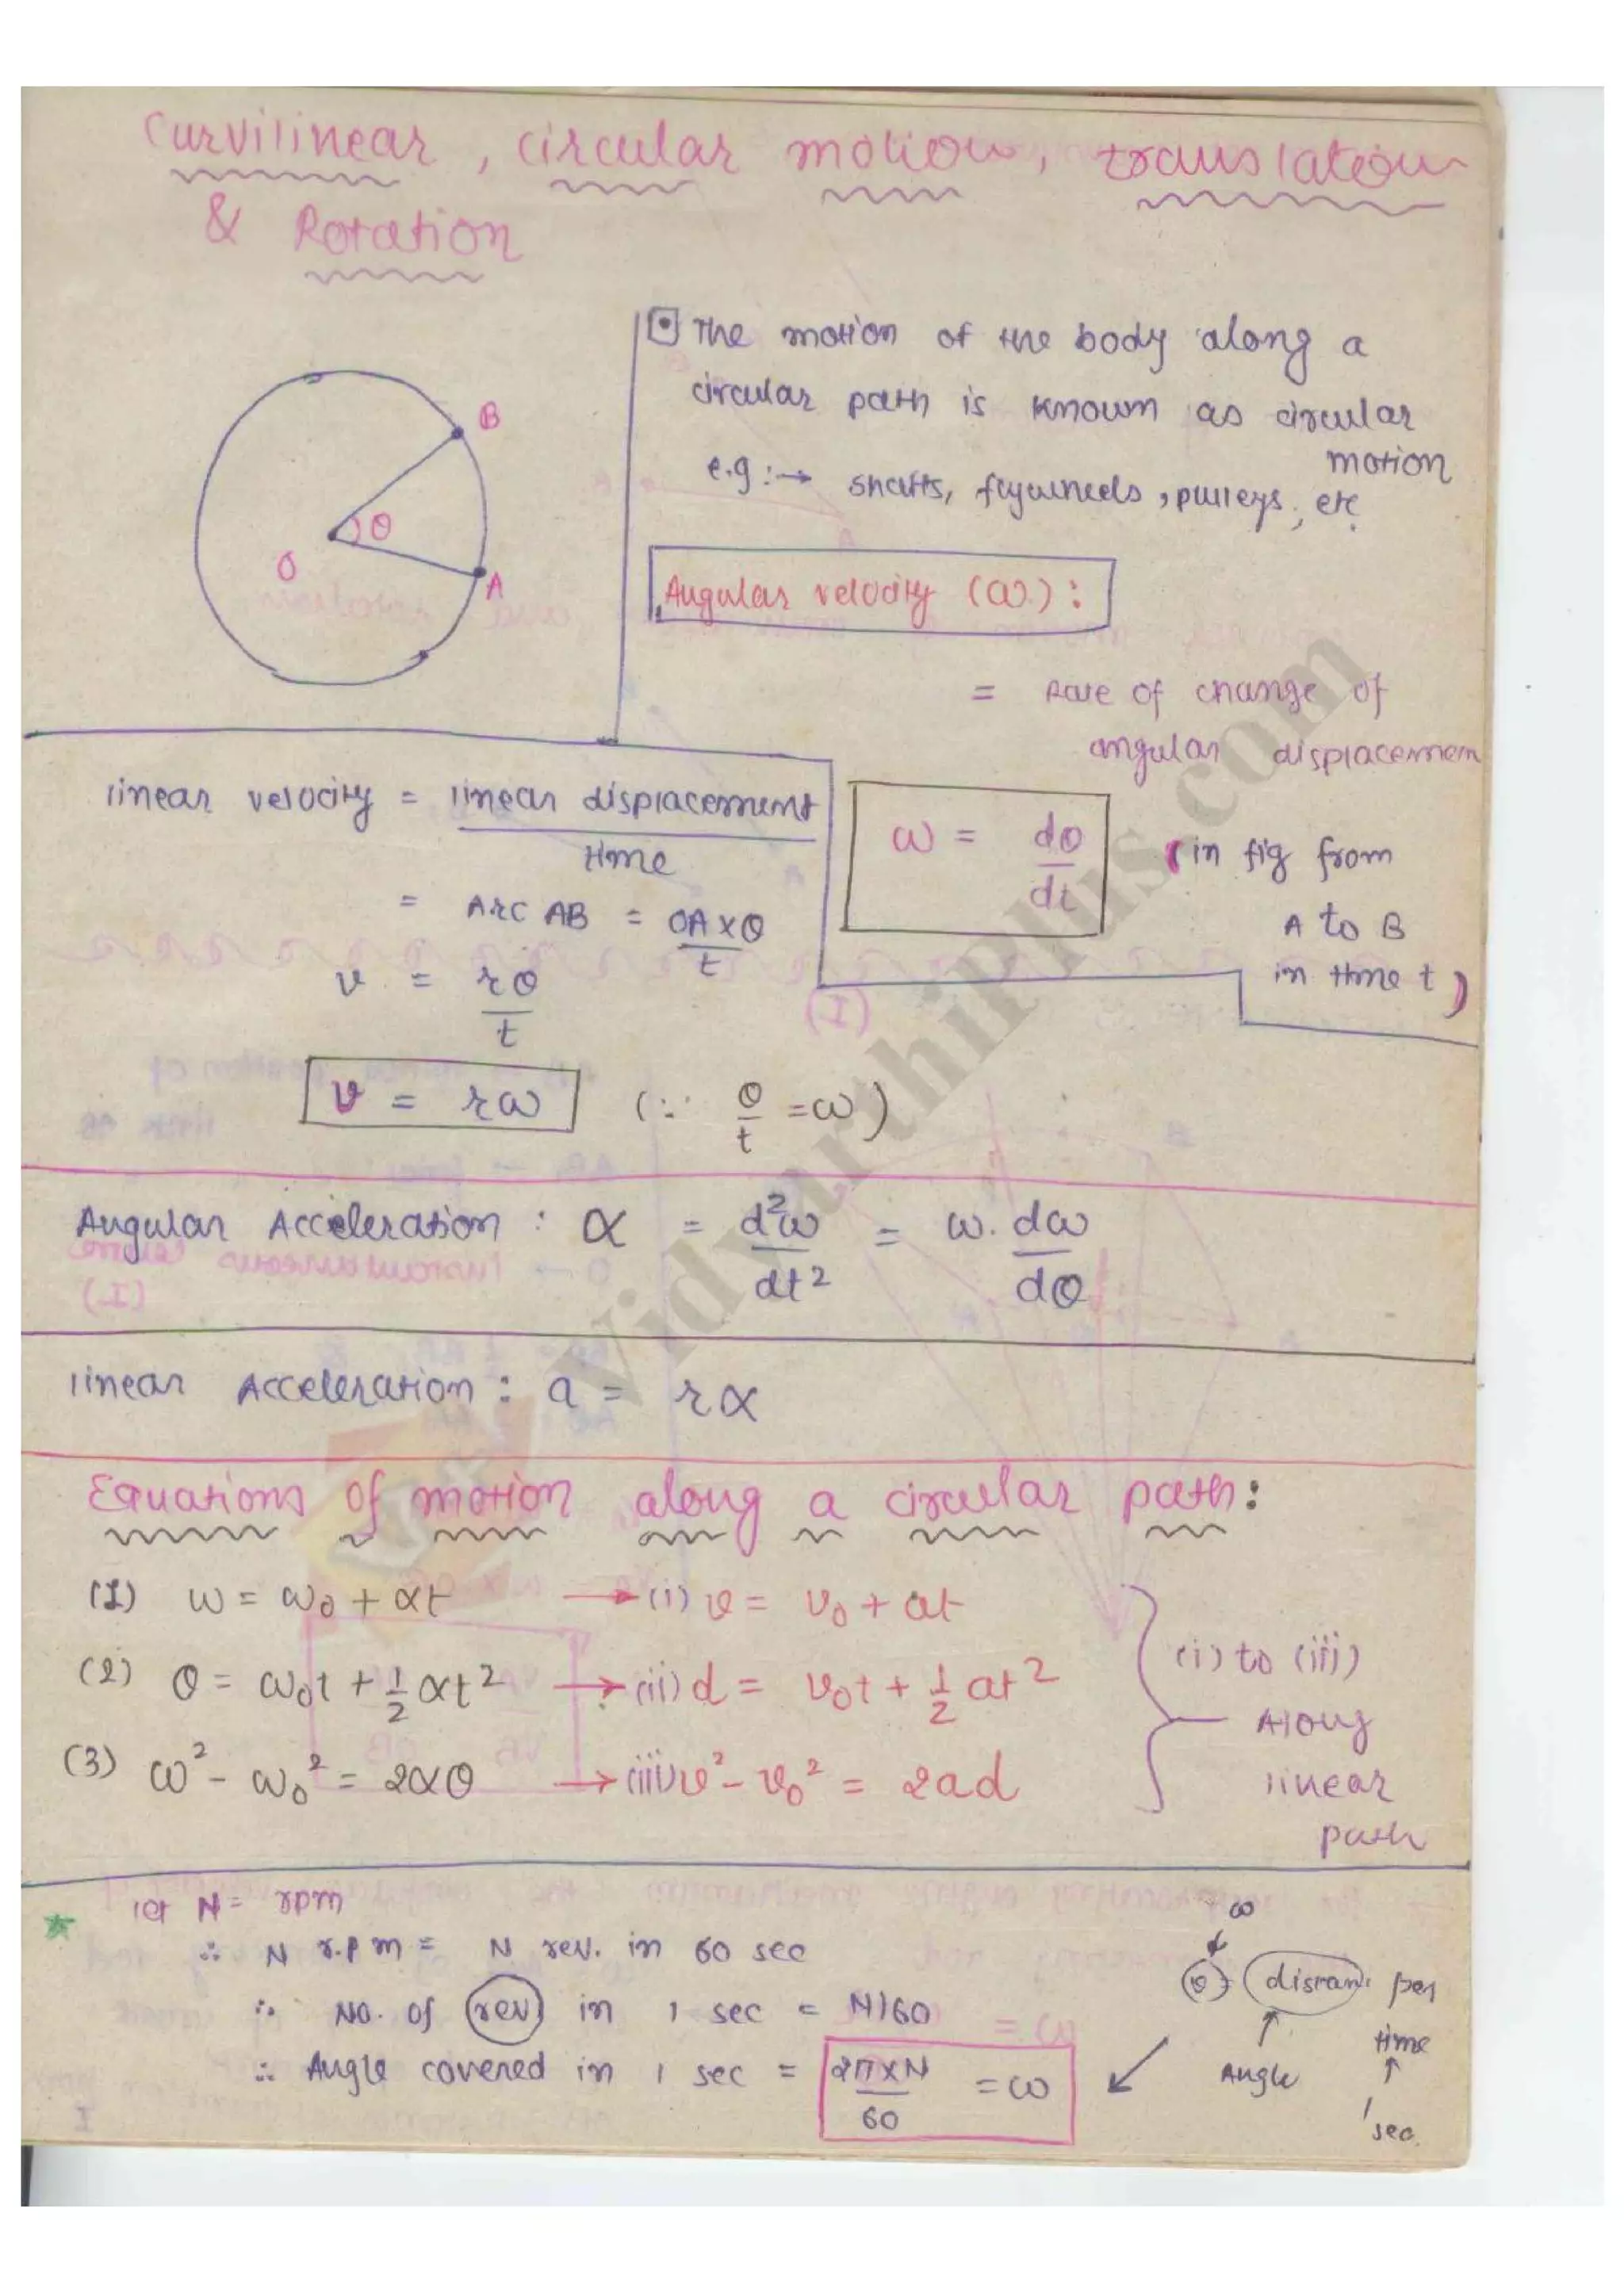 Curvilinear, circular motion, translation
& Rotation
The motion of the body along a
circular path is known as circular
motion
e.g :→ shafts, flywheels, pulleys, etc.
B
θ
O
A
Angular velocity (ω) :
= Rate of change of
angular displacemen
linear velocity = linear displacement
time
ω = dθ
dt
(in fig from
A to B
in time t)
= Arc AB = OA×θ
t
v = rθ
t
v = rω (∵ θ/t = ω)
Angular Acceleration : α = d²ω/dt² = ω. dω/dθ
linear Acceleration : a = rα
Equations of motion along a circular path:
(1) ω = ω₀ + αt → (i) v = v₀ + at
(2) θ = ω₀t + 1/2 αt² → (ii) d = v₀t + 1/2 at²
(3) ω² - ω₀² = 2αθ → (iii) v² - v₀² = 2ad
(i) to (iii)
Along
linear
path
let N = rpm
∴ N r.p m = N rev. in 60 sec
∴ No. of rev in 1 sec = N/60
∴ Angle covered in 1 sec = 2π×N/60 = ω
ω
distan. per
time
Angle
1 sec.
VidyarthiPlus.com